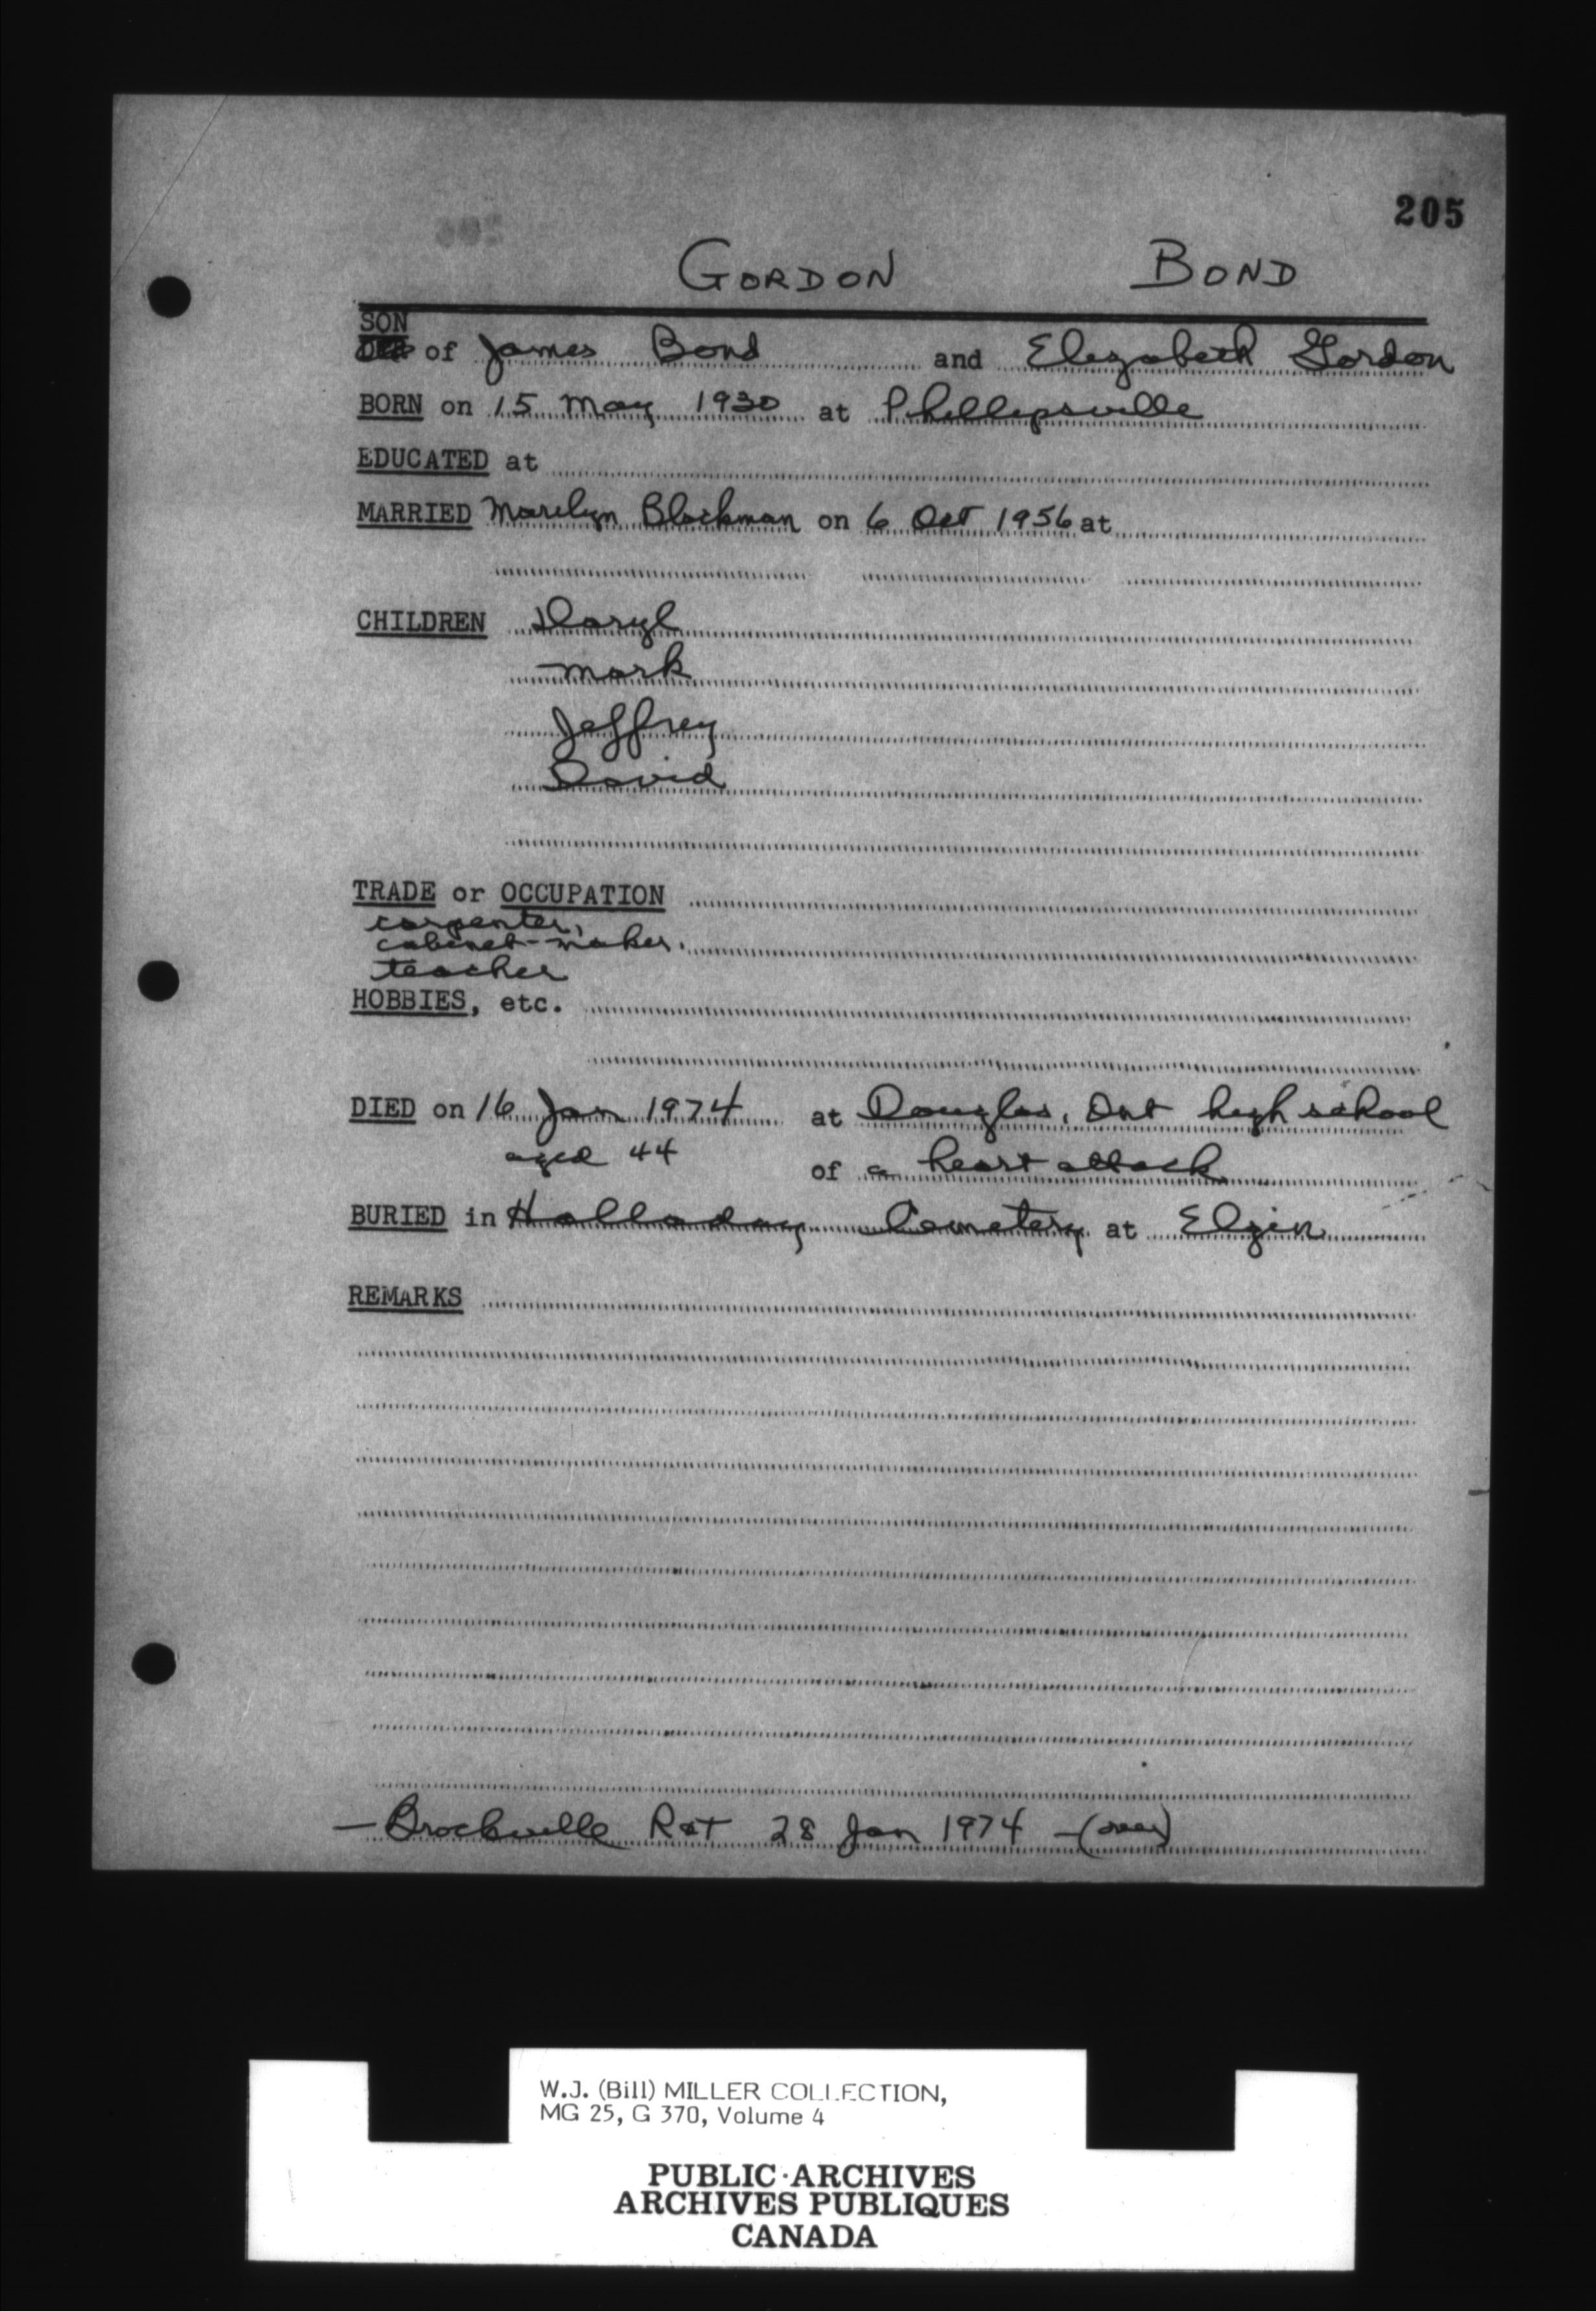 205
GORDON BOND
SON
of James Bond and Elizabeth Gordon
BORN on 15 May 1930 at Phillipsville
EDUCATED at
MARRIED Marilyn Blackman on 6 Oct 1956 at
CHILDREN Daryl
Mark
Jeffrey
David
TRADE or OCCUPATION
carpenter,
cabinet-maker.
teacher
HOBBIES, etc.
DIED on 16 Jan 1974 at Douglas, Ont high school
aged 44 of a heart attack
BURIED in Halladay Cemetery at Elgin
REMARKS
— Brockville R&T 28 Jan 1974 — (over)
W.J. (Bill) MILLER COLLECTION,
MG 25, G 370, Volume 4
PUBLIC ARCHIVES
ARCHIVES PUBLIQUES
CANADA